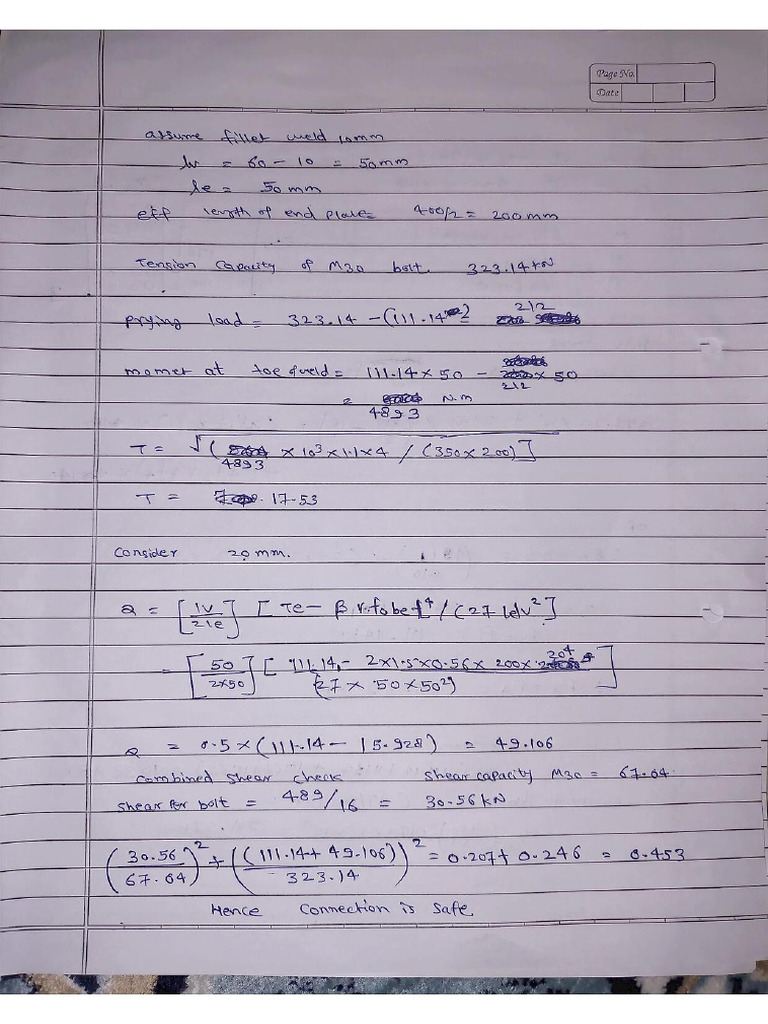 Page No.
Date
assume fillet weld 10mm
lv = 60 - 10 = 50mm
le = 50mm
eff length of end plate = 400/2 = 200mm
Tension capacity of M30 bolt. 323.14 kN
prying load = 323.14 - (111.14) = 212
momet at toe of weld = 111.14 × 50 - 212 × 50
= 4893 N.m
T = √(4893 × 10³ × 1.1 × 4 / (350 × 200)]
T = 17.53
Consider 20mm.
Q = [lv/2le] [Te - β r.fo be t⁴ / (27 le lv²]
= [50/2×50] [111.14 - 2×1.5×0.56×200×20⁴ / (27 × 50×50²)]
Q = 0.5 × (111.14 - 15.928) = 49.106
combined shear check shear capacity M30 = 67.04
shear per bolt = 489/16 = 30.56 kN
(30.56/67.04)² + ((111.14 + 49.106)/323.14)² = 0.207 + 0.246 = 0.453
Hence Connection is safe.